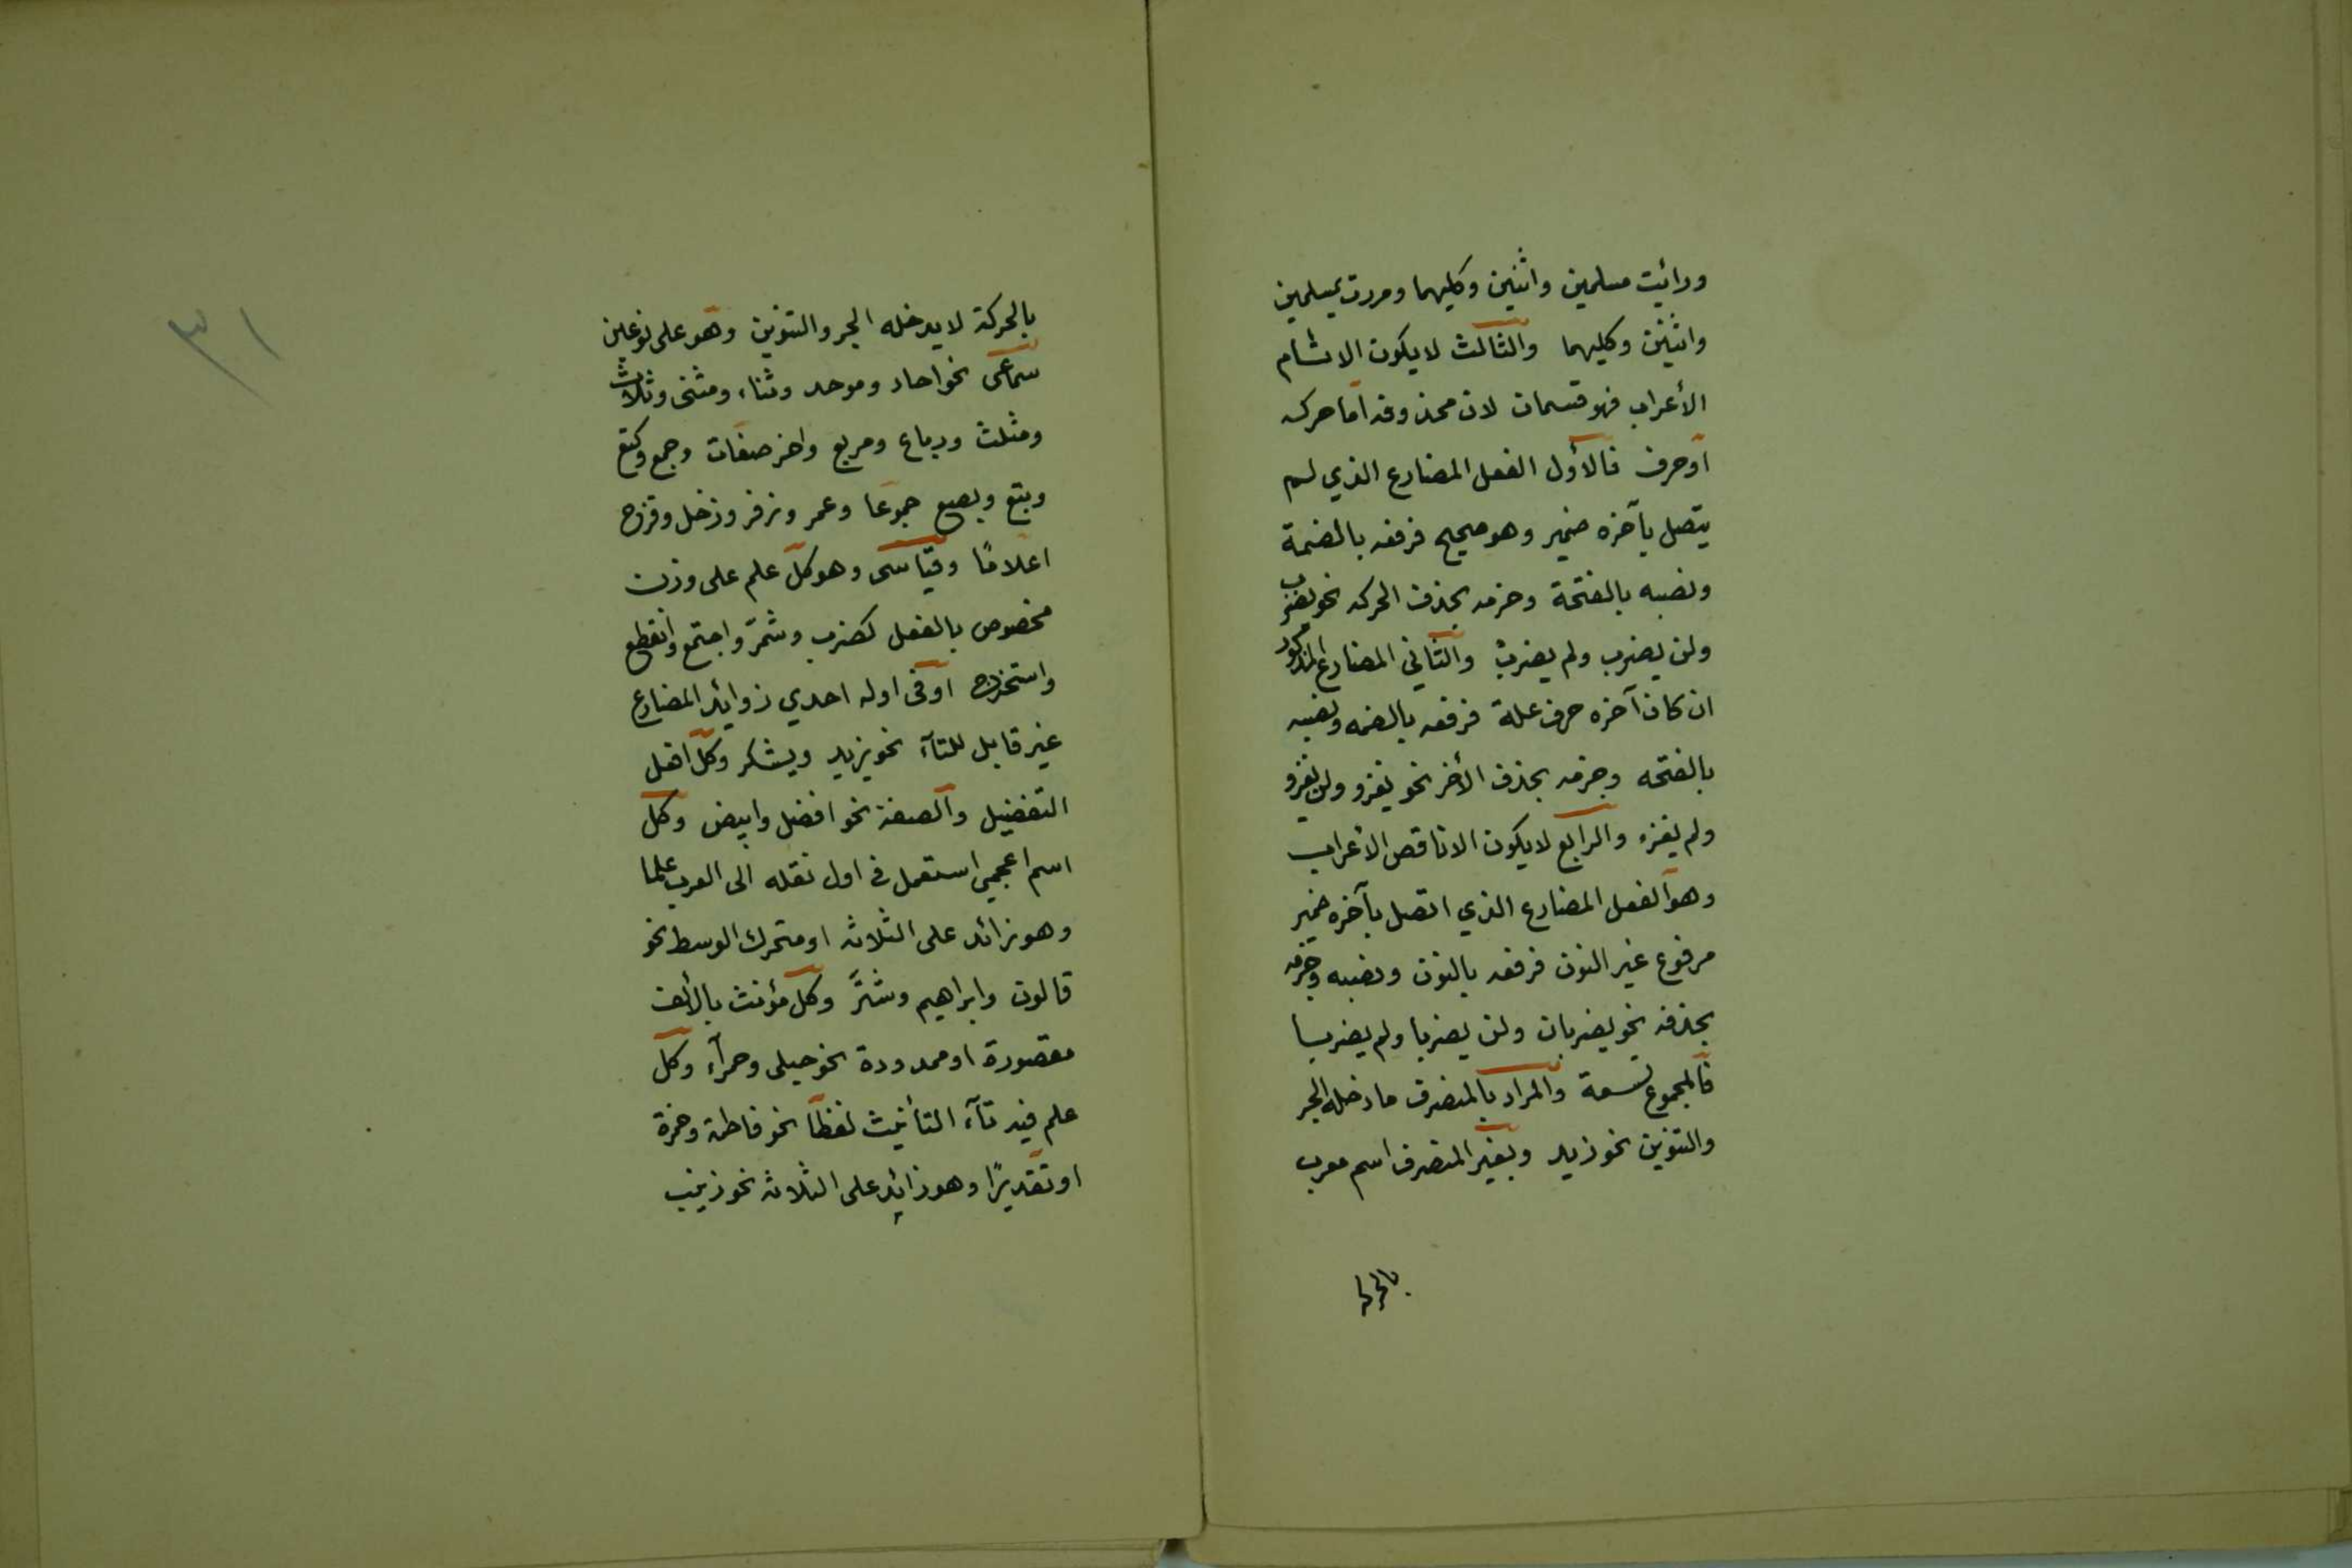 ورائيت مسلمين واثنين وكليهما ومررت بمسلمين
واثنين وكليهما والثالث لا يكون الا تام
الأعراب فهو قسمان لان محذوفه اما حركه
او حرف فالأول الفعل المضارع الذي لم
يتصل بآخره ضمير وهو صحيح فرفعه بالضمة
ونصبه بالفتحة وجزمه بحذف الحركه نحو يضرب
ولن يضرب ولم يضرب والثاني المضارع المذكور
ان كان آخره حرف علة فرفعه بالضمه ونصبه
بالفتحه وجزمه بحذف الأخر نحو يغزو ولن يغزو
ولم يغز والرابع لا يكون الا ناقص الأعراب
وهو الفعل المضارع الذي اتصل بآخره ضمير
مرفوع غير النون فرفعه بالنون ونصبه وجزمه
بحذفه نحو يضربان ولن يضربا ولم يضربا
فالمجموع تسعة والمراد بالمنصرف ما دخله الجر
والتنوين نحو زيد وبغير المنصرف اسم معرب
بالحركه
٣١
بالحركة لا يدخله الجر والتنوين وهو على نوعين
سماعى نحو احاد وموحد وثناء ومثنى وثلاث
ومثلث ورباع ومربع واخر صفات وجمع وكتع
وبتع وبصع جموعا وعمر وزفر وزحل وقزح
اعلامًا وقياسى وهو كل علم على وزن
مخصوص بالفعل كضرب وشمّر واجتمع وانقطع
واستخرج او فى اوله احدي زوائد المضارع
غير قابل للتآء نحو يزيد ويشكر وكل افعل
التفضيل والصفة نحو افضل وابيض وكل
اسم اعجمي استعمل فى اول نقله الى العرب علما
وهو زائد على الثلاثه او متحرك الوسط نحو
قالون وابراهيم وشتَر وكل مؤنث بالالف
مقصورة او ممدودة نحو حبلى وحمرآء وكل
علم فيه تآء التأنيث لفظًا نحو فاطمة وحمزة
او تقديرًا وهو زائد على الثلاثه نحو زينب